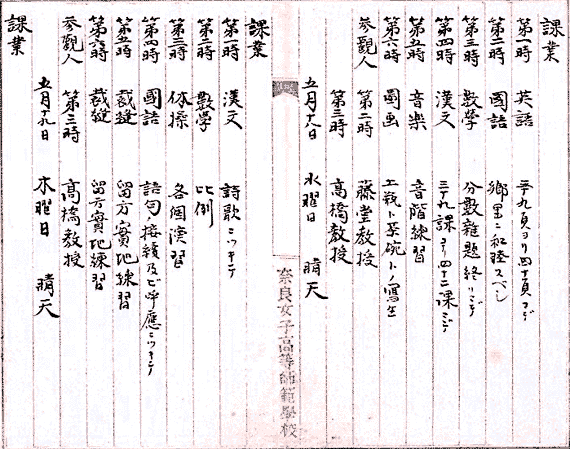 課業
第一時 英語 三十九頁ヨリ四十頁マデ
第二時 國語 鄕里ニ和睦スベシ
第三時 數學 分數雜題終リマデ
第四時 漢文 三十九課ヨリ四十二課マデ
第五時 音樂 音階練習
第六時 圖画 土瓶ト茶碗トノ寫生
參觀人 第二時 藤堂教授
第三時 髙橋教授
五月十八日 水曜日 晴天
奈良女子高等師範學校
課業
第一時 漢文 詩歌ニツキテ
第二時 數學 比例
第三時 体操 各個演習
第四時 國語 語句ノ接續及ビ呼應ニツキテ
第五時 裁縫 留方實地練習
第六時 裁縫 留方實地練習
參觀人 第三時 髙橋教授
五月十九日 木曜日 晴天
課業